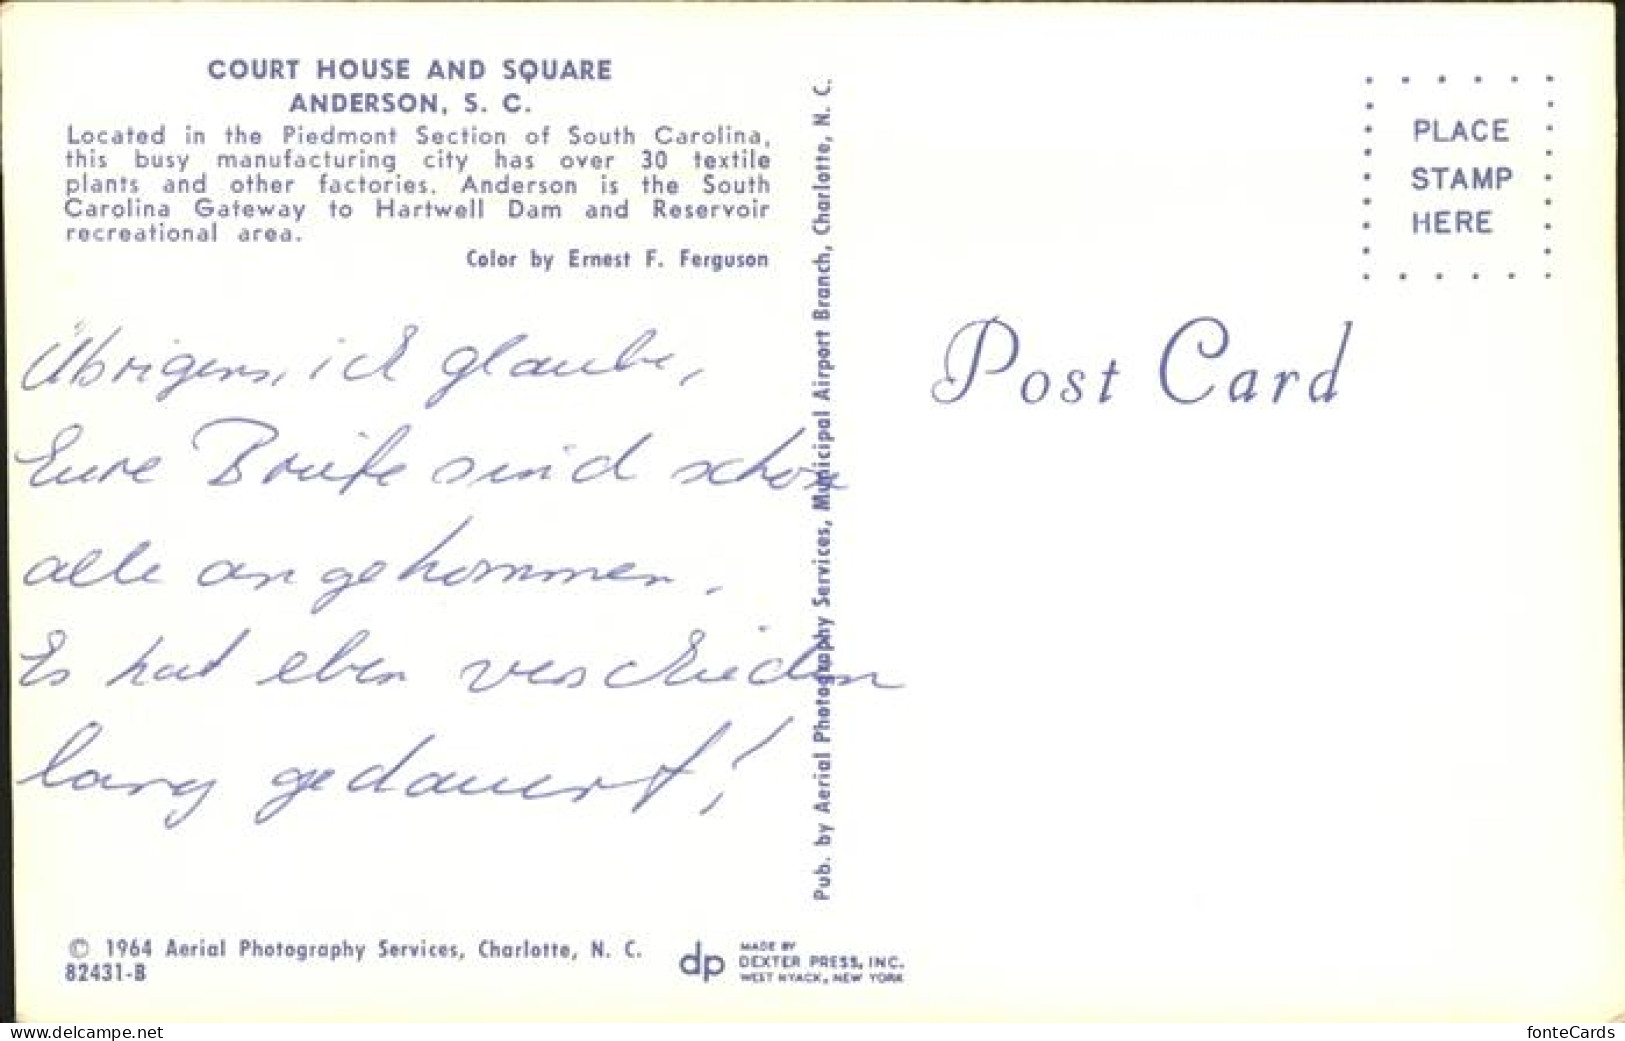 COURT HOUSE AND SQUARE
ANDERSON, S. C.
Located in the Piedmont Section of South Carolina,
this busy manufacturing city has over 30 textile
plants and other factories. Anderson is the South
Carolina Gateway to Hartwell Dam and Reservoir
recreational area.
Color by Ernest F. Ferguson
Übrigens, ich glaube,
Eure Briefe sind schon
alle angekommen.
Es hat eben verschieden
lang gedauert!
© 1964 Aerial Photography Services, Charlotte, N. C.
82431-B
dp
MADE BY
DEXTER PRESS, INC.
WEST NYACK, NEW YORK
Pub. by Aerial Photography Services, Municipal Airport Branch, Charlotte, N. C.
PLACE
STAMP
HERE
Post Card
www.delcampe.net
fonteCards